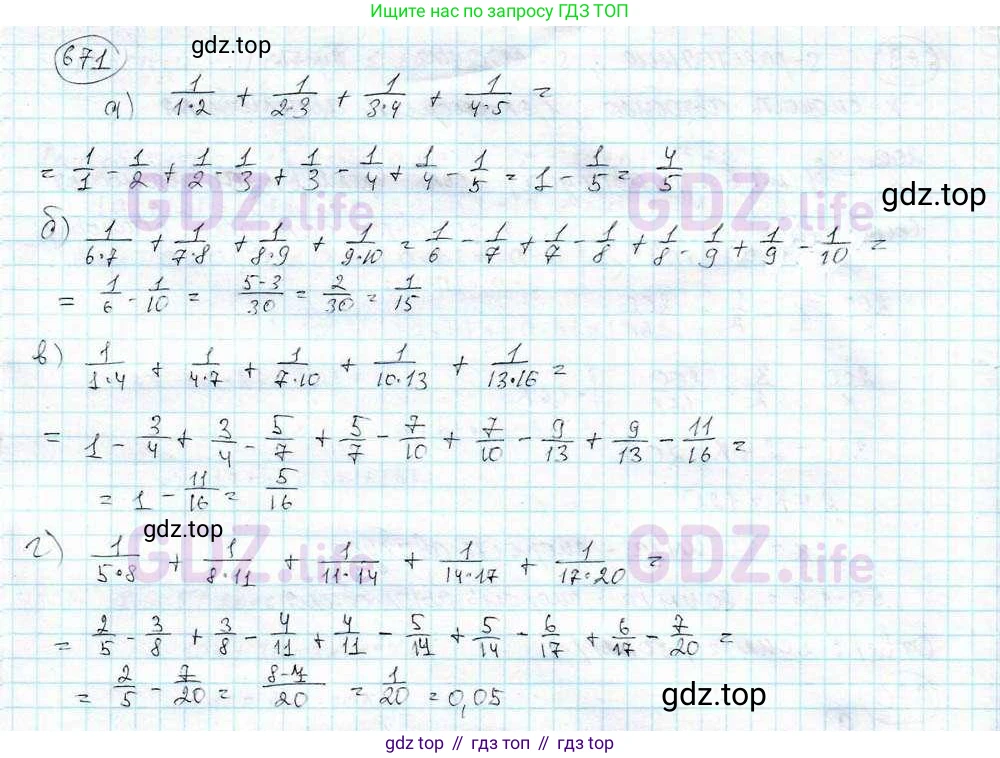 Ищите нас по запросу ГДЗ ТОП
671
gdz.top
а) 1/(1·2) + 1/(2·3) + 1/(3·4) + 1/(4·5) =
= 1/1 - 1/2 + 1/2 - 1/3 + 1/3 - 1/4 + 1/4 - 1/5 = 1 - 1/5 = 4/5
gdz.top
GDZ.life GDZ.life
б) 1/(6·7) + 1/(7·8) + 1/(8·9) + 1/(9·10) = 1/6 - 1/7 + 1/7 - 1/8 + 1/8 - 1/9 + 1/9 - 1/10 =
= 1/6 - 1/10 = (5-3)/30 = 2/30 = 1/15
в) 1/(1·4) + 1/(4·7) + 1/(7·10) + 1/(10·13) + 1/(13·16) =
= 1 - 3/4 + 3/4 - 5/7 + 5/7 - 7/10 + 7/10 - 9/13 + 9/13 - 11/16 =
= 1 - 11/16 = 5/16
gdz.top
г) 1/(5·8) + 1/(8·11) + 1/(11·14) + 1/(14·17) + 1/(17·20) =
GDZ.life GDZ.life
= 2/5 - 3/8 + 3/8 - 4/11 + 4/11 - 5/14 + 5/14 - 6/17 + 6/17 - 7/20 =
= 2/5 - 7/20 = (8-7)/20 = 1/20 = 0,05
gdz.top
gdz top // гдз топ // gdz top